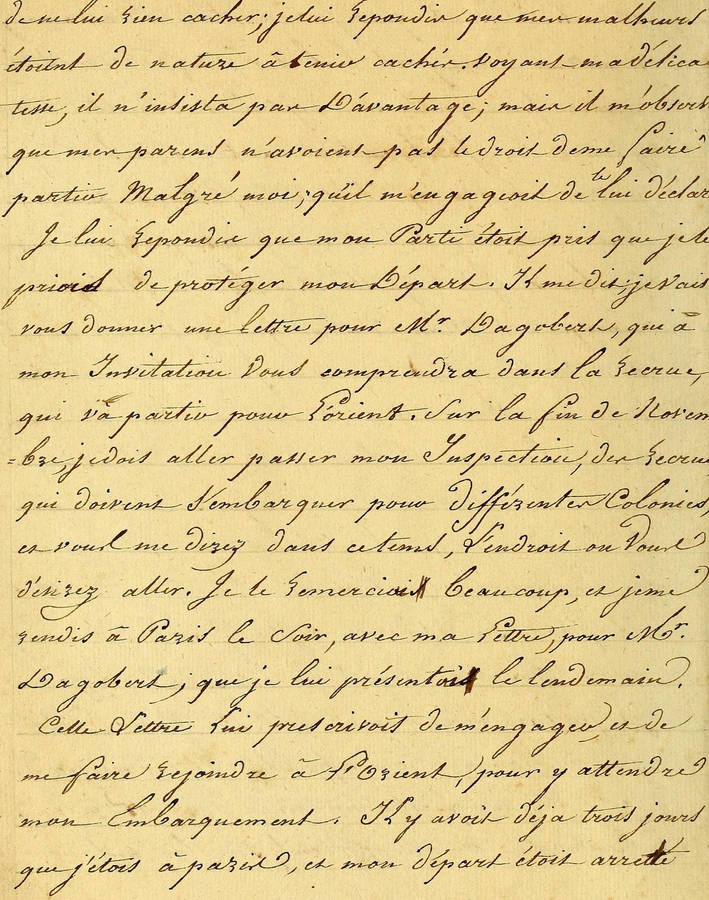 de ne lui rien cacher; je lui repondis que mes malheurs
étoient de nature à tenir cachés. Voyant ma délica
tesse, il n'insista pas D'avantage; mais il m'observ
que mes parens n'avoient pas le droit de me faire
partir Malgré moi; qu'il m'engageoit de te lui déclar
Je lui repondis que mon Parti étoit pris que je le
priois de protéger mon Départ. Il me dit; je vais
vous donner une lettre pour Mr. Dagobert, qui à
mon Invitation Vous comprendra dans la recrue,
qui va partir pour L'orient. Sur la fin de Novem
=bre, je dois aller passer mon Inspection, des recrue
qui doivent s'embarquer pour différentes Colonies,
et vous me direz dans ce tems, L'endroit ou Vous
désirez aller. Je le remerciais beaucoup, et je me
rendis à Paris le Soir, avec ma Lettre, pour Mr.
Dagobert; que je lui présentois le lendemain.
Cette Lettre Lui prescrivoit de m'engager, et de
me faire rejoindre à L'Orient, pour y attendre
mon Embarquement. Il y avoit déja trois jours
que j'étois à paris, et mon départ étoit arretté